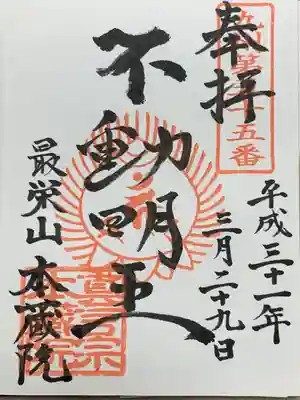 奉拝
平成三十一年
三月二十九日
不動明王
最栄山
本蔵院